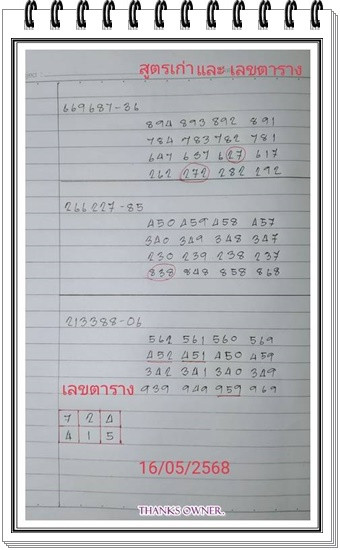 สูตรเก่า และ เลขตาราง
669687-36
894 893 892 891
784 783 782 781
647 637 627 617
262 272 282 292
266227-85
450 459 458 457
340 349 348 347
230 239 238 237
838 848 858 868
213388-06
562 561 560 569
452 451 450 459
342 341 340 349
เลขตาราง 939 949 959 969
7 2 4
4 1 5
16/05/2568
THANKS OWNER.